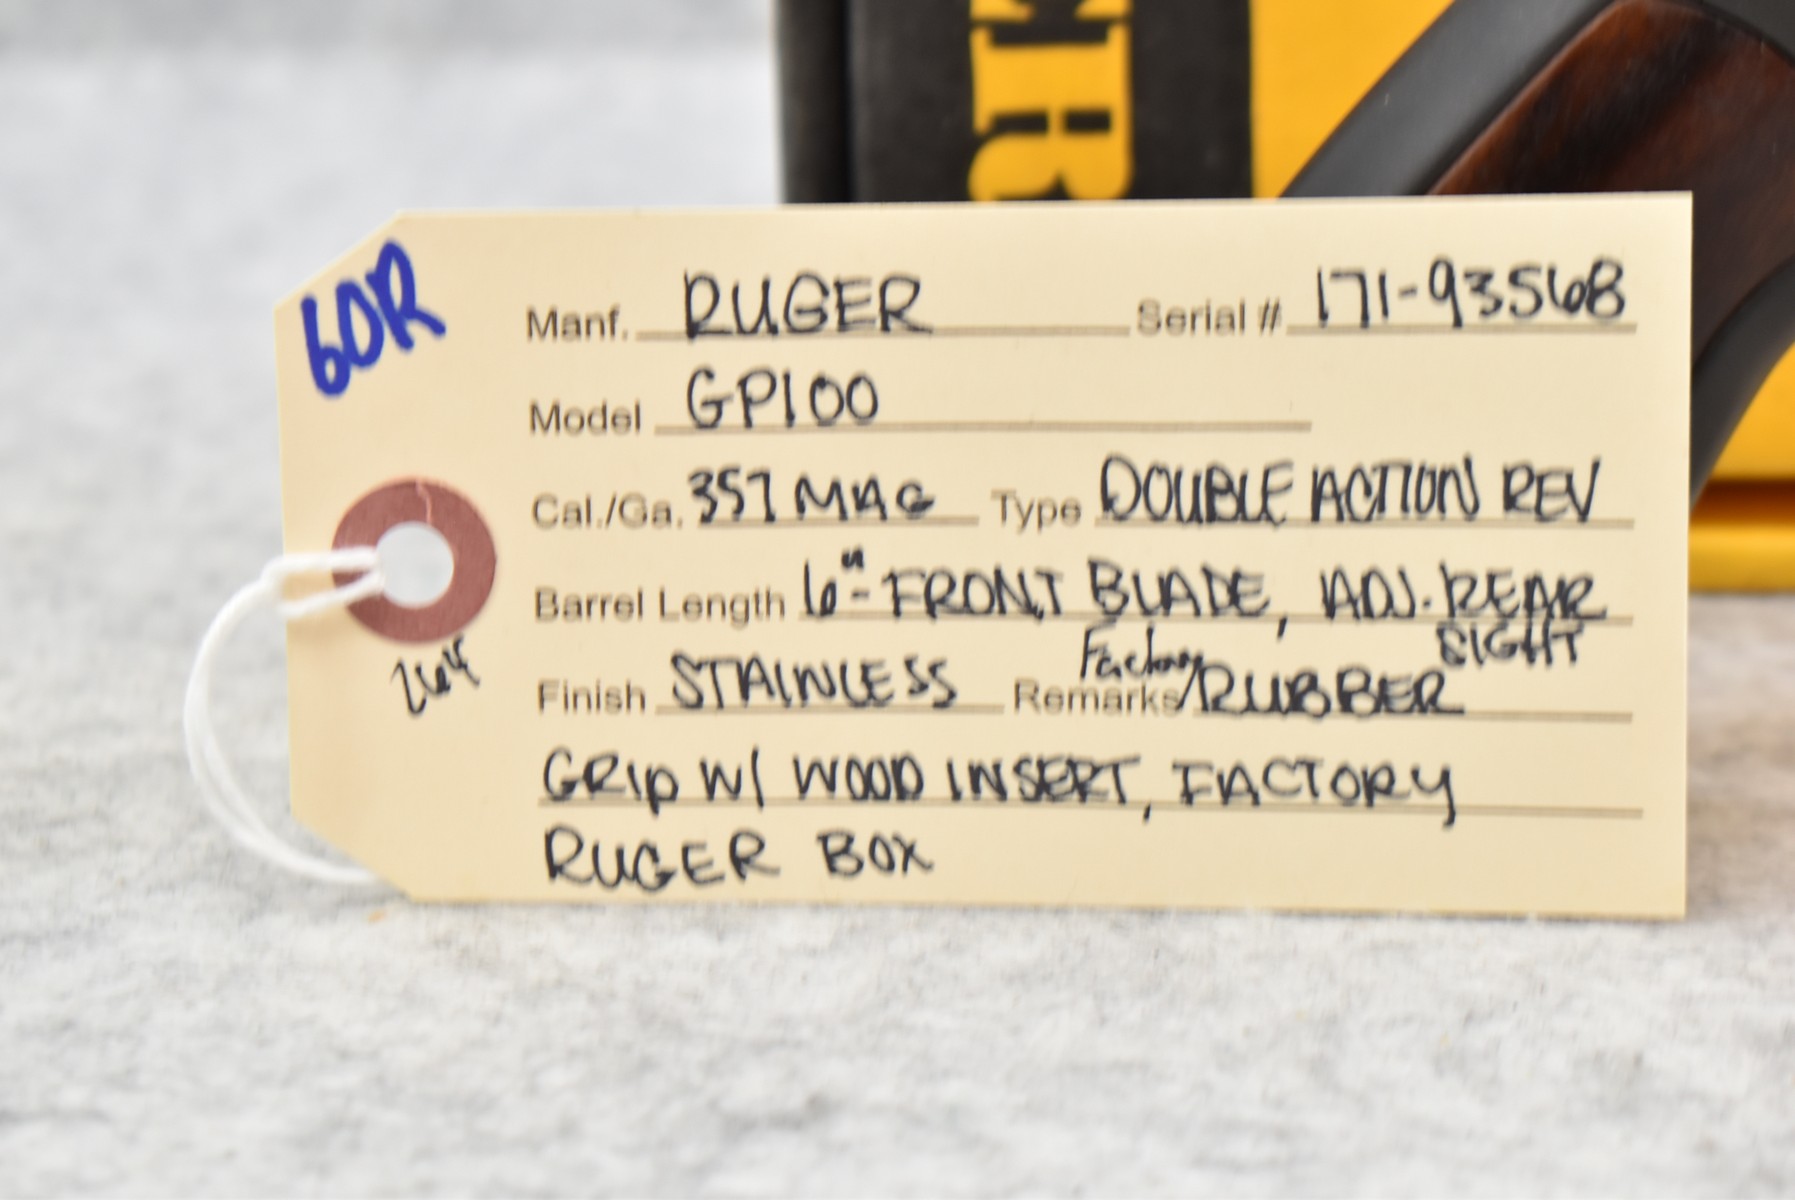 ER
60R
Manf. RUGER Serial # 171-93568
Model GP100
Cal./Ga. 357 MAG Type DOUBLE ACTION REV
Barrel Length 6"- FRONT BLADE, ADJ. REAR
SIGHT
264
Finish STAINLESS Remarks Factory/RUBBER
GRIP W/ WOOD INSERT, FACTORY
RUGER BOX